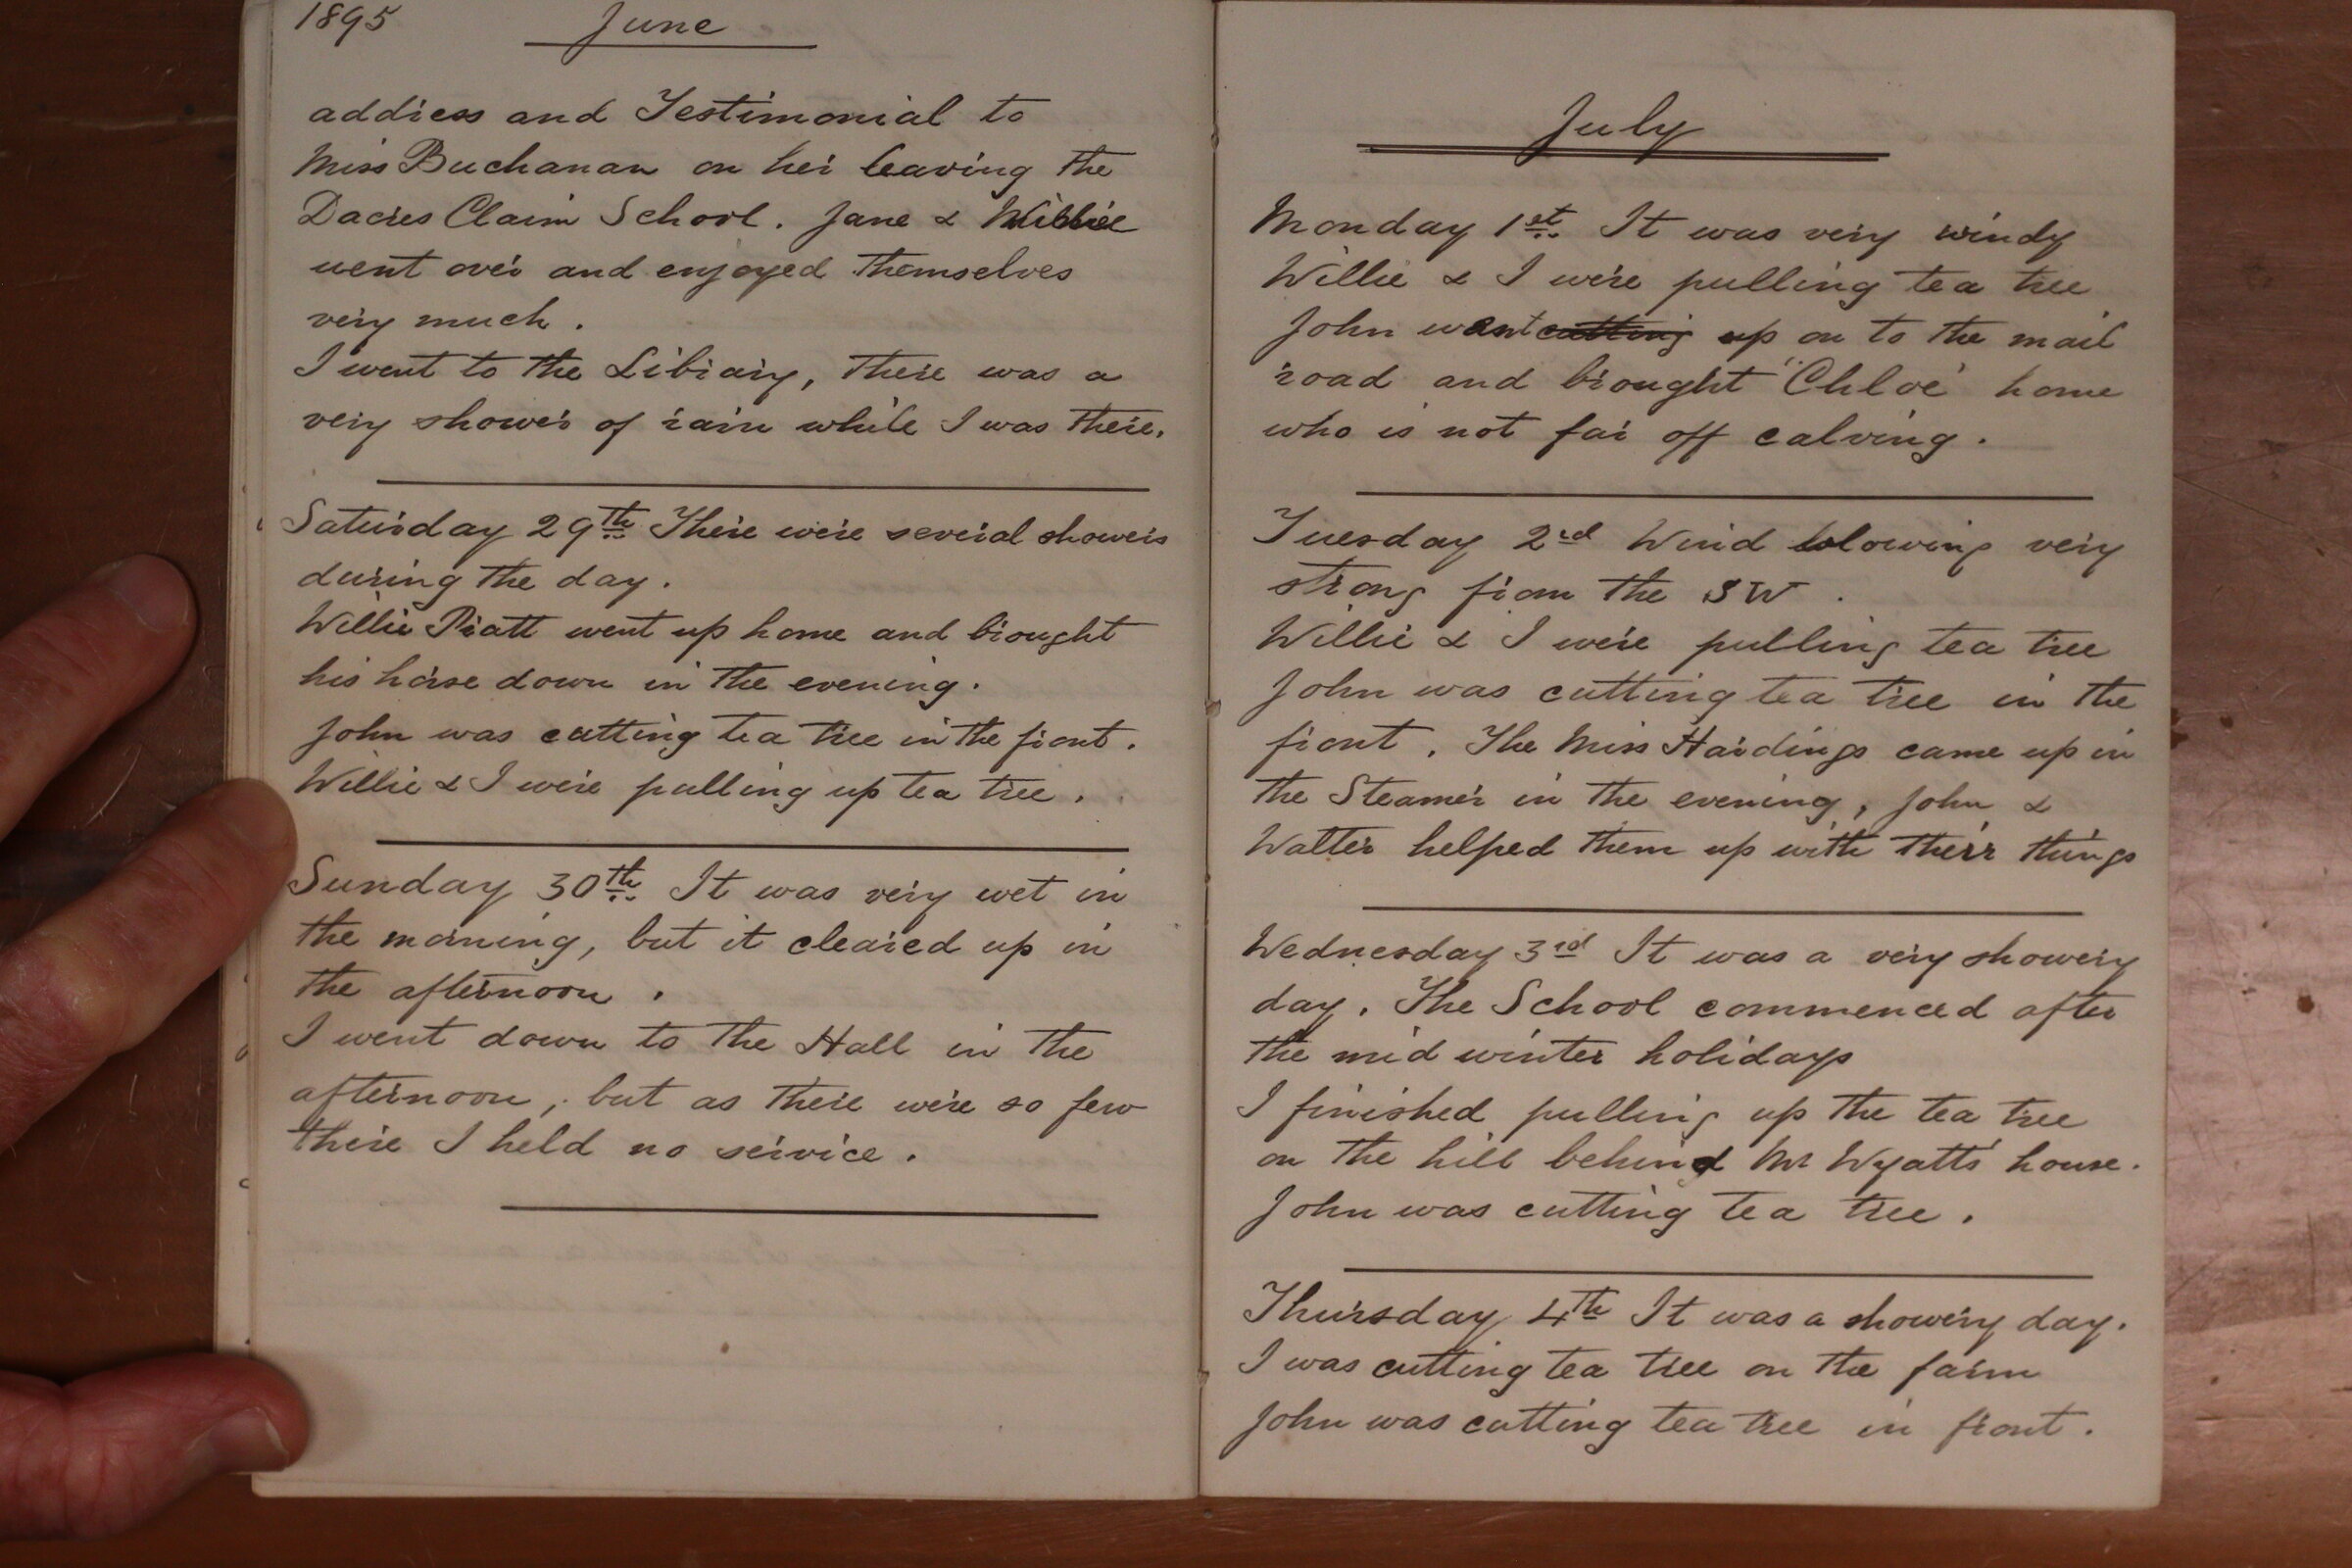 1895 June
address and Testimonial to
Miss Buchanan on her leaving the
Dacres Claim School. Jane & Willie
went over and enjoyed themselves
very much.
I went to the Library, there was a
very shower of rain while I was there.
Saturday 29th There were several showers
during the day.
Willie Pratt went up home and brought
his horse down in the evening.
John was cutting tea tree in the front.
Willie & I were pulling up tea tree.
Sunday 30th It was very wet in
the morning, but it cleared up in
the afternoon.
I went down to the Hall in the
afternoon, but as there were so few
there I held no service.
July
Monday 1st It was very windy
Willie & I were pulling tea tree
John went cutting up on to the mail
road and brought "Chloe" home
who is not far off calving.
Tuesday 2nd Wind blowing very
strong from the SW.
Willie & I were pulling tea tree
John was cutting tea tree in the
front. The Miss Hardings came up in
the Steamer in the evening, John &
Walter helped them up with their things
Wednesday 3rd It was a very showery
day. The School commenced after
the mid winter holidays
I finished pulling up the tea tree
on the hill behind Mr Wyatts' house.
John was cutting tea tree.
Thursday 4th It was a showery day.
I was cutting tea tree on the farm
John was cutting tea tree in front.